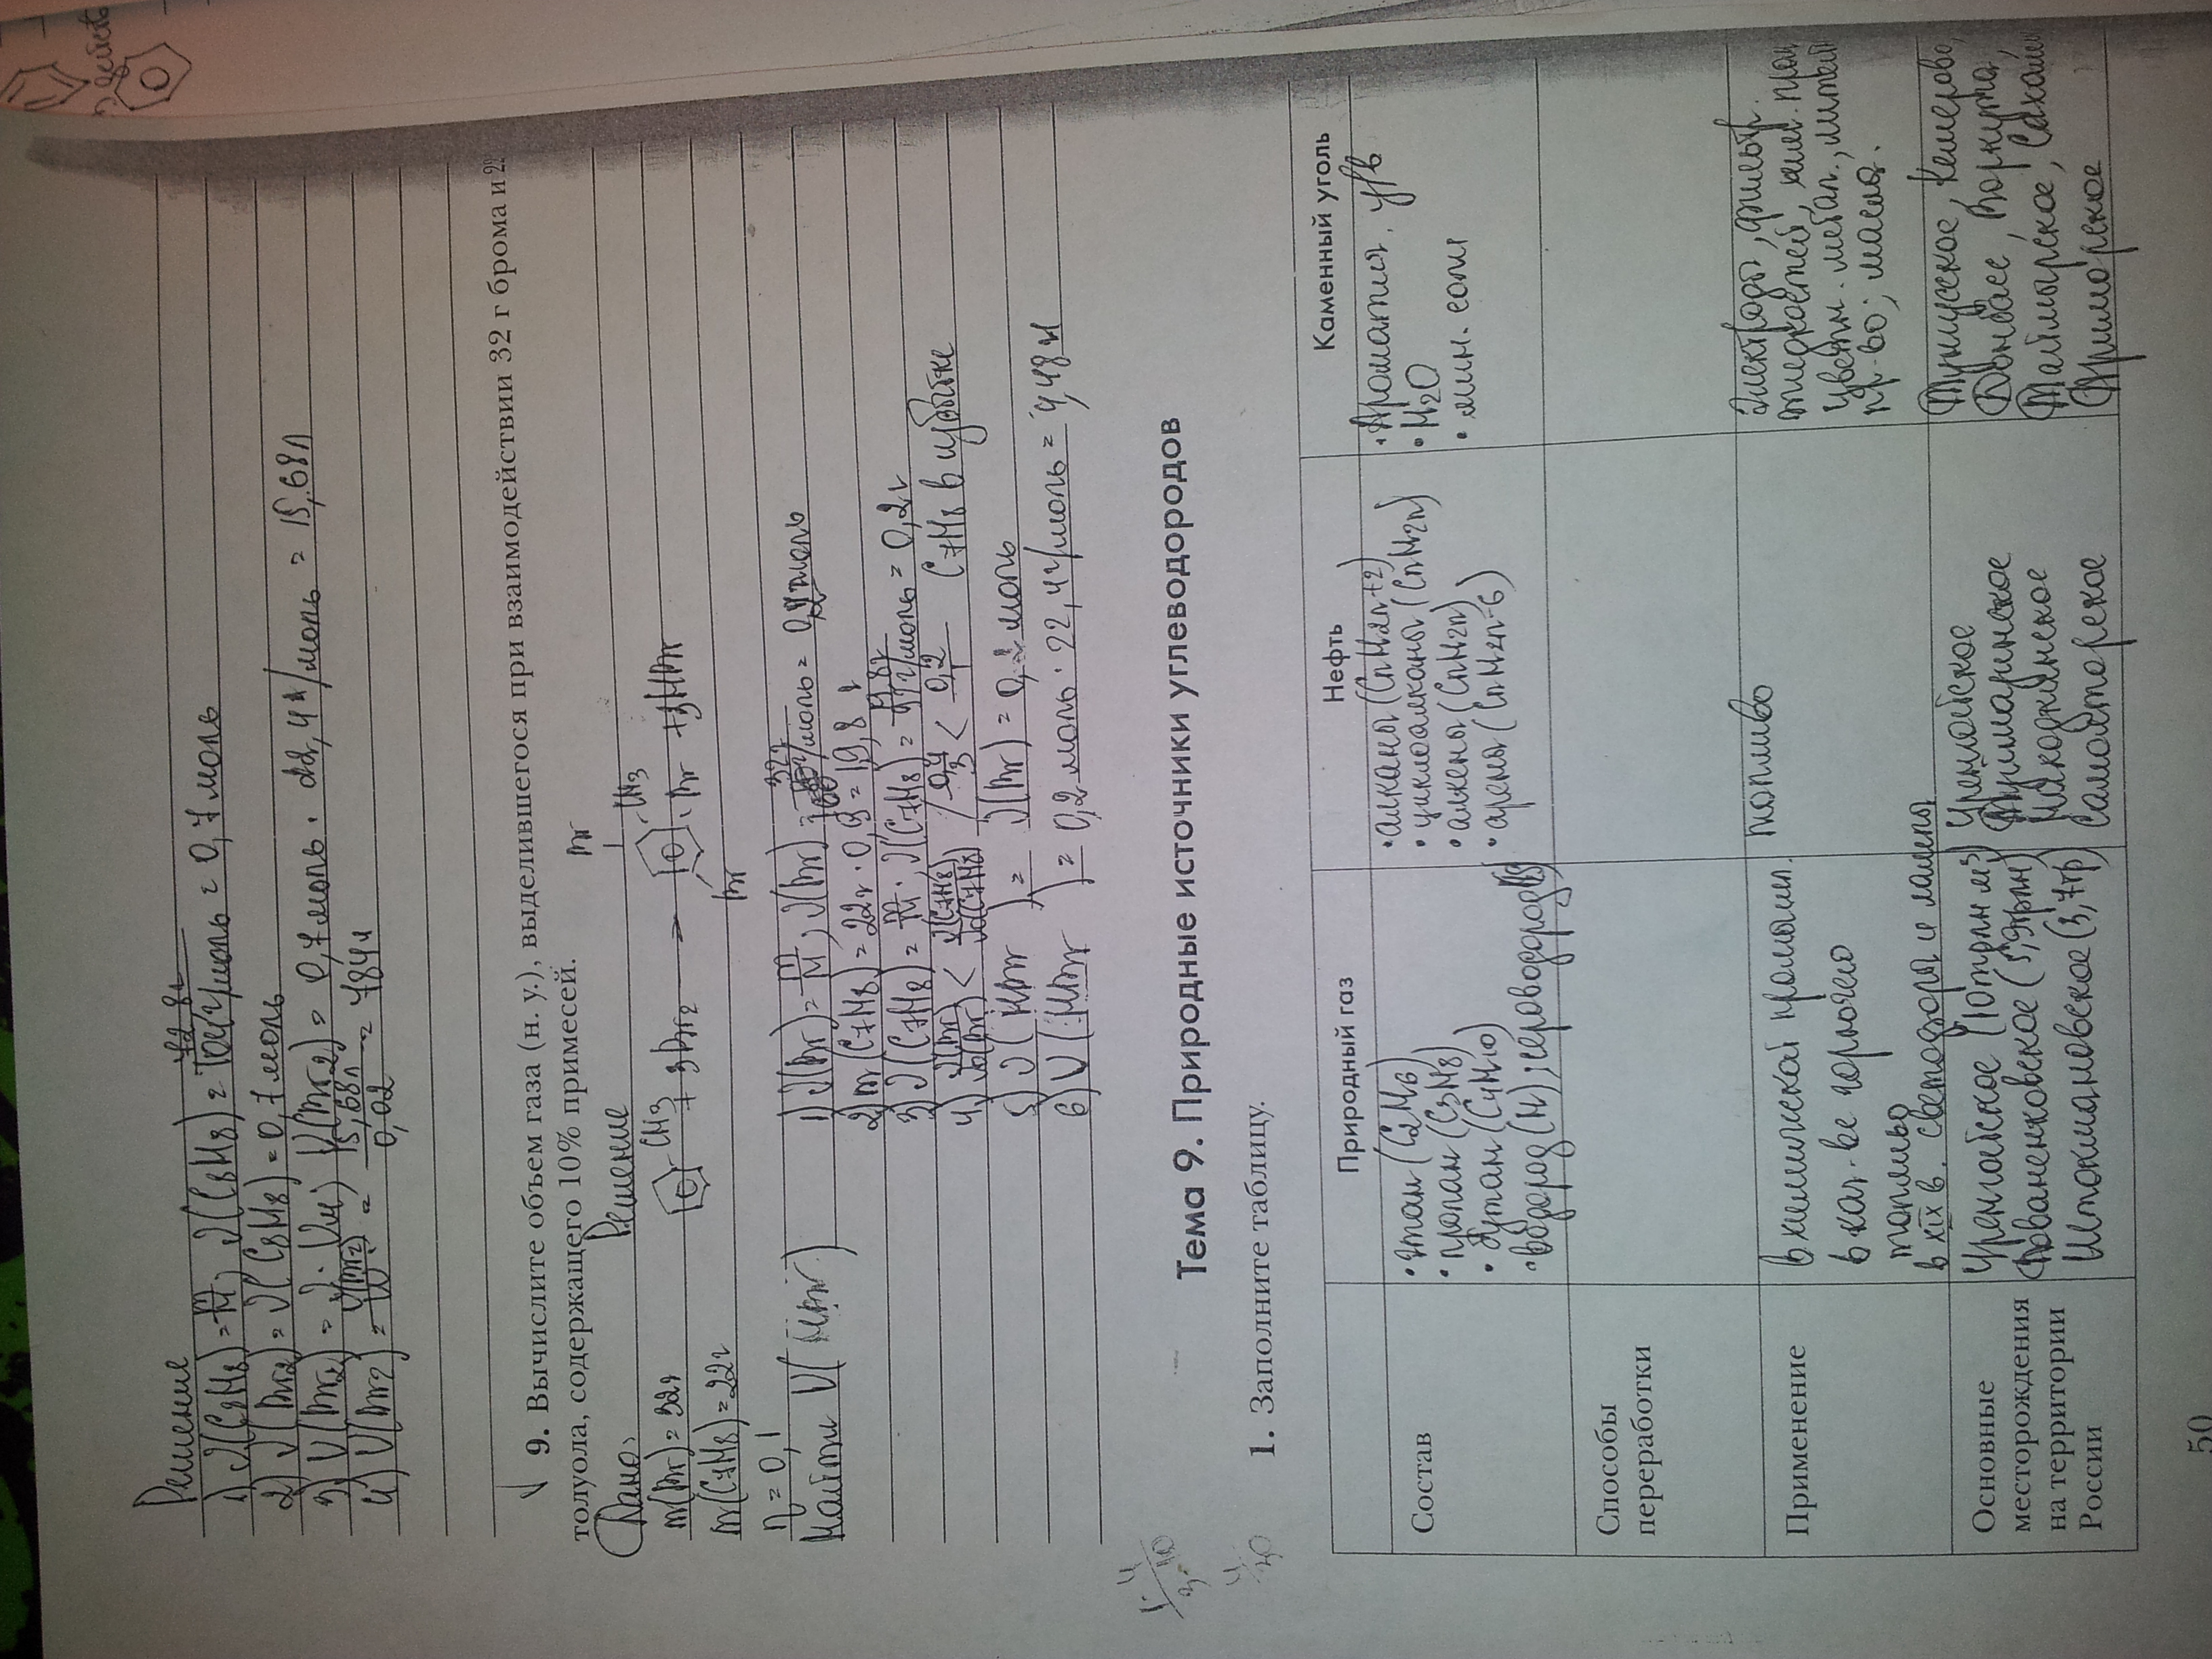 Решение
1) ν(C8H8) = m/M, ν(C8H8) = 72,8г / 104г/моль = 0,7 моль
2) ν(Br2) = ν(C8H8) = 0,7 моль
3) V(Br2) = ν · Vм; V(Br2) = 0,7 моль · 22,4л/моль = 15,68л
4) V(Br2) = = 15,68л / 0,02 = 784л
9. Вычислите объем газа (н. у.), выделившегося при взаимодействии 32 г брома и 22
толуола, содержащего 10% примесей.
Дано: Решение
m(Br) = 32г
m(C7H8) = 22г
CH3 + 3Br2 → Br CH3 Br Br + 3HBr
η = 0,1
Найти V(HBr)
1) ν(Br) = m/M, ν(Br) = 32г / 160г/моль = 0,2 моль
2) m(C7H8) = 22г · 0,9 = 19,8г
3) ν(C7H8) = m/M; ν(C7H8) = 19,8г / г/моль = 0,2г
4) ν(Br)/ν0(Br) < ν(C7H8)/ν0(C7H8) / 3 < 0,2 C7H8 в избытке
5) ν(HBr) = ν(Br) = 0,2 моль
6) V(HBr) = 0,2 моль · 22,4г/моль = 4,48л
Тема 9. Природные источники углеводородов
1. Заполните таблицу.
Природный газ Нефть Каменный уголь
Состав
• этан (C2H6)
• пропан (C3H8)
• бутан (C4H10)
• водород (H); сероводород
• алканы (CnH2n+2)
• циклоалканы (CnH2n)
• алкены (CnH2n)
• арены (CnH2n-6)
• Ароматич. у/в
• H2O
• мин. соли
Способы
переработки
Применение
в химической промышл.
в кач-ве горючего
топливо
в XIX в. светофоры и лампы
топливо
Электрод, фильтр.
жидкостей, хим. пром
цветн. метал., лития
пр-во; масла.
Основные
месторождения
на территории
России
Уренгойское (10 трлн м3)
Бованенковское (5,9трлн)
Штокмановское (3,7тр)
Уренгойское
Туймазинское
Находкинское
Самотлорское
Тунгусское, Кемерово,
Донбасс, Воркута
Таймырское, Сахалин
Приморское
50